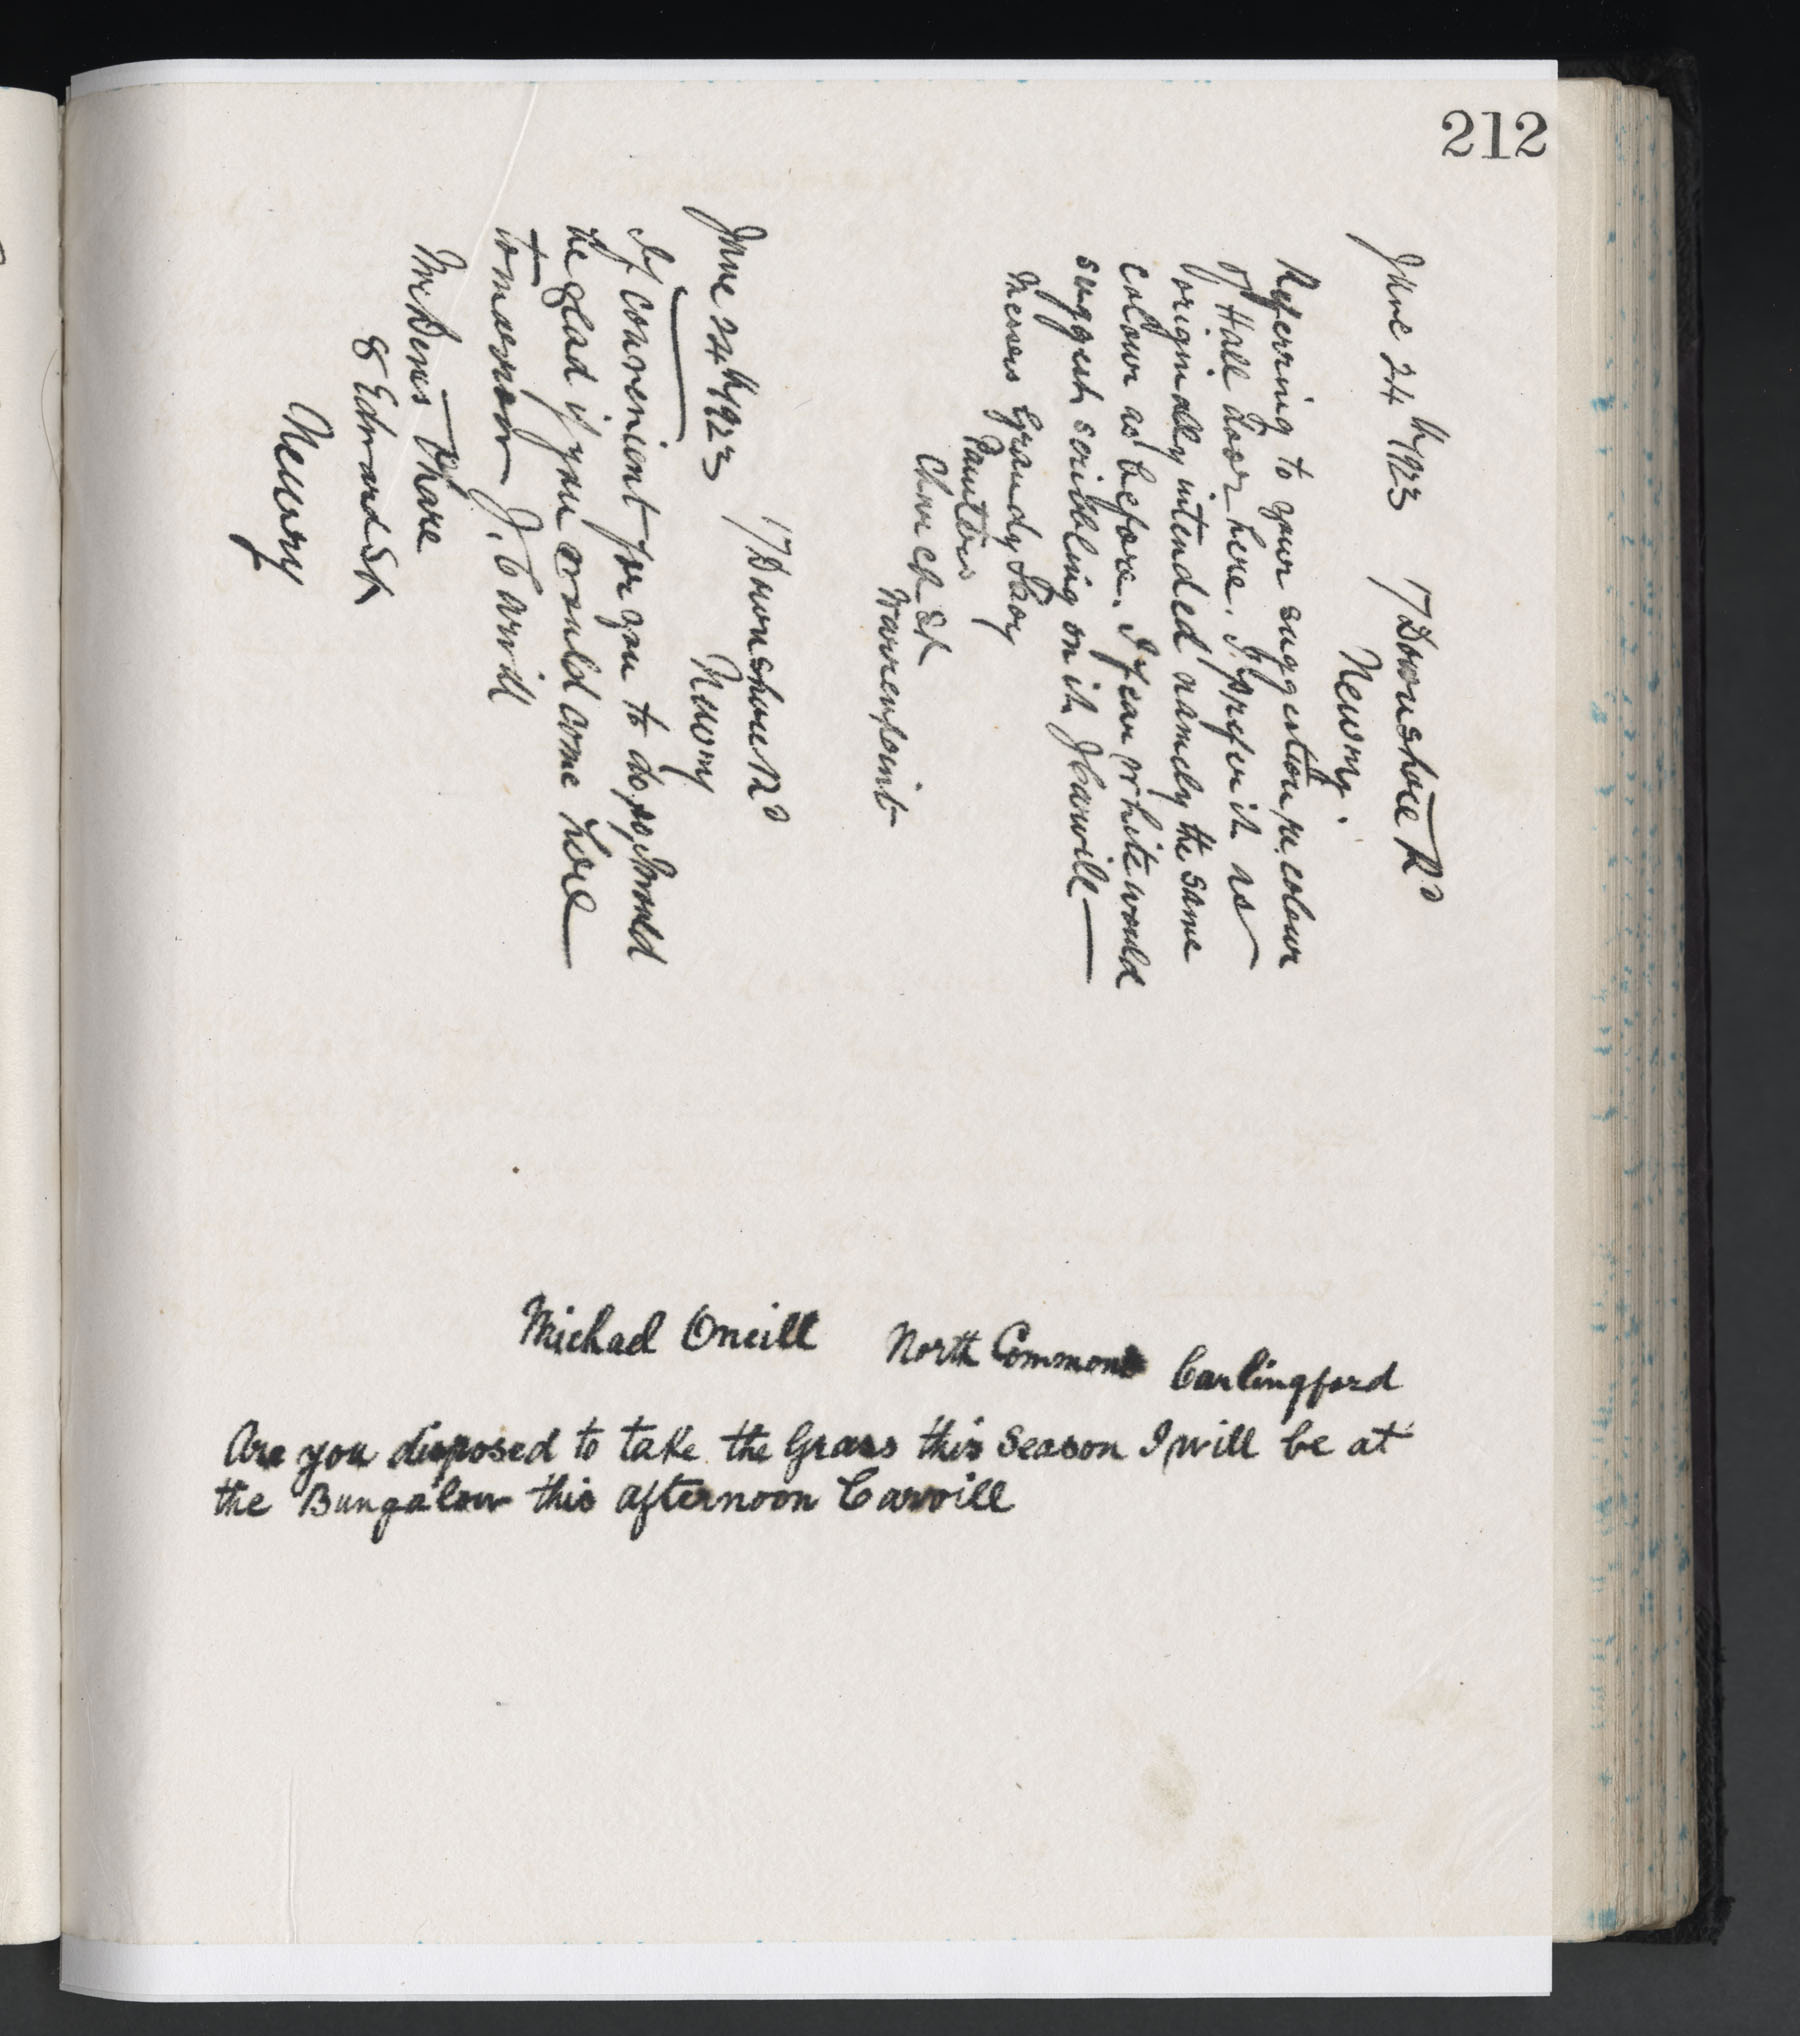 212
June 24th 1923 17 Downshire Rd
Newry.
Referring to your suggestion re colour
of Hall door here. I prefer it as
originally intended namely the same
colour as before. I fear white would
suggest scribbling on it J Carvill
Messrs Grandy &
Painters
Church St
Warrenpoint
June 24th 1923 17 Downshire Rd
Newry
If convenient for you to do so, I would
be glad if you would come here
tomorrow J. Carvill
Mr Denis Phare
8 Edward St
Newry
Michael Oneill North Commons Carlingford
Are you disposed to take the Grass this Season I will be at
the Bungalow this afternoon Carvill